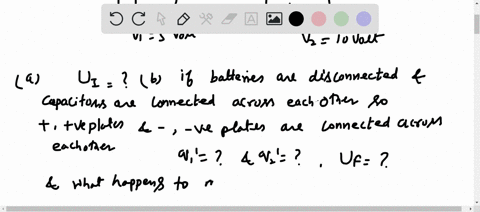 V₁ = 5 Volt V₂ = 10 Volt
(a) U_I = ? (b) if batteries are disconnected &
capacitors are connected across each other so
+, +ve plates & -, -ve plates are connected across
each other
q₁' = ? & q₂' = ? , U_f = ?
& what happens to